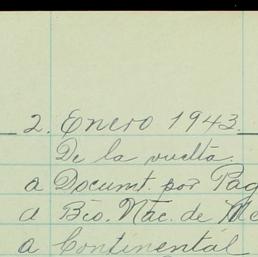 2. Enero 1943
De la vuelta.
a Documt. por Pag
a Bco. Nac. de Me
a Continental